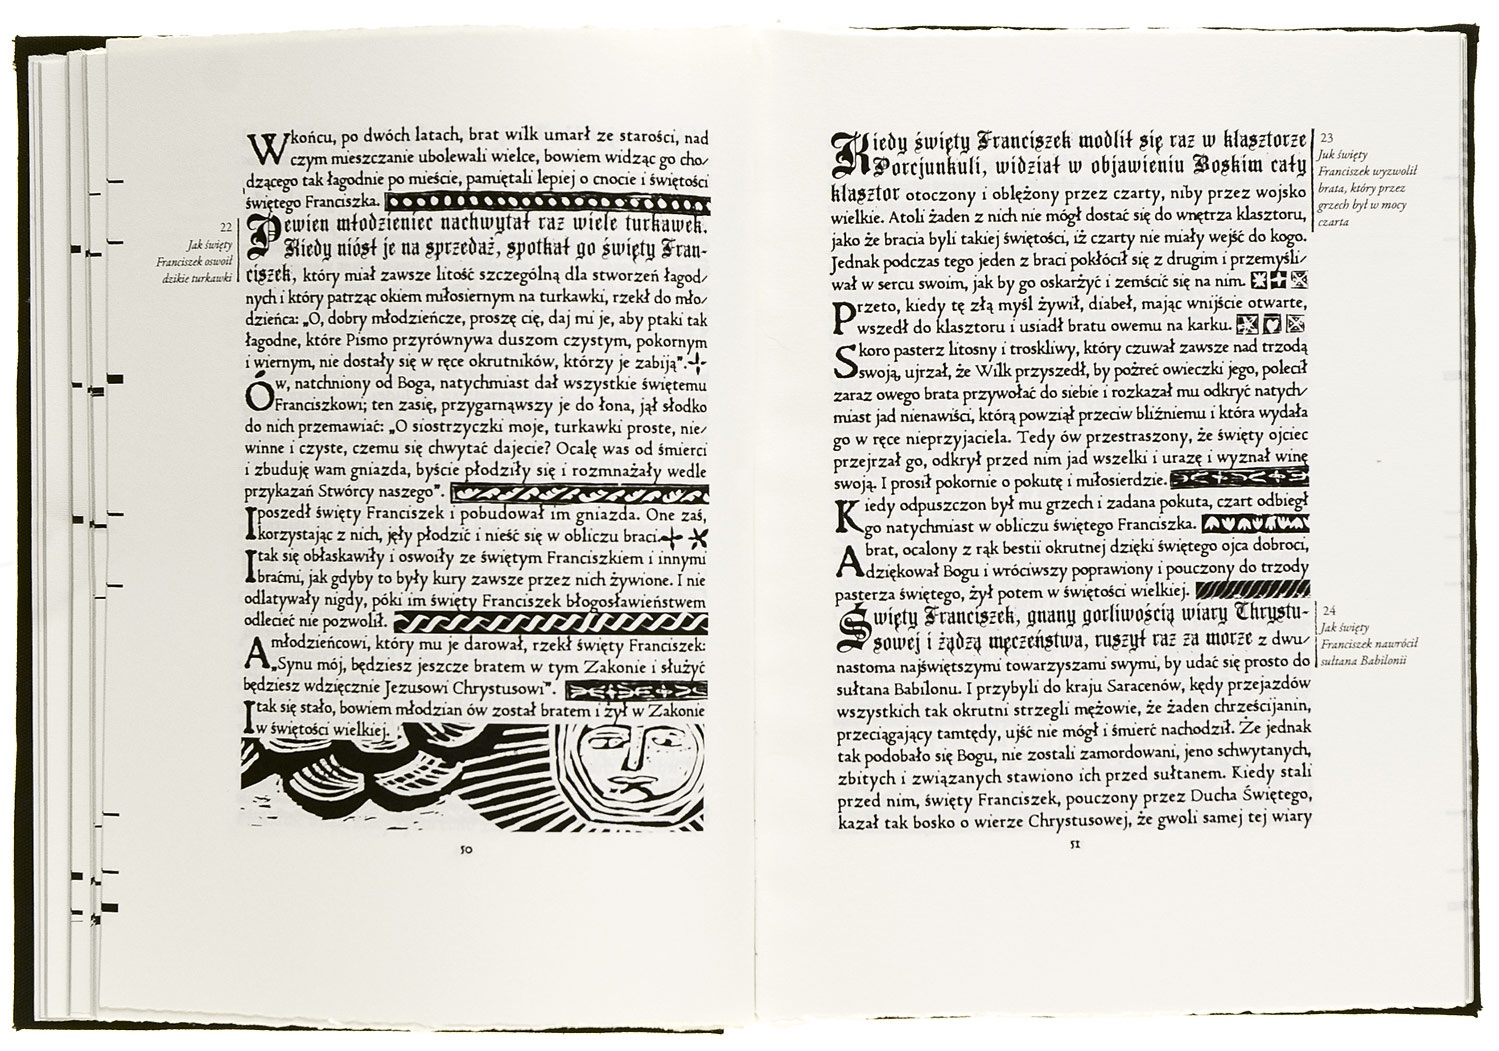 W końcu, po dwóch latach, brat wilk umarł ze starości, nad
czym mieszczanie ubolewali wielce, bowiem widząc go cho/
dzącego tak łagodnie po mieście, pamiętali lepiej o cnocie i świętości
świętego Franciszka.
22
Jak święty
Franciszek oswoił
dzikie turkawki
Pewien młodzieniec nachwytał raz wiele turkawek.
Kiedy niósł je na sprzedaż, spotkał go święty Fran-
ciszek, który miał zawsze litość szczególną dla stworzeń łagod/
nych i który patrząc okiem miłosiernym na turkawki, rzekł do mło/
dzieńca: „O, dobry młodzieńcze, proszę cię, daj mi je, aby ptaki tak
łagodne, które Pismo przyrównywa duszom czystym, pokornym
i wiernym, nie dostały się w ręce okrutników, którzy je zabiją”.
Ów, natchniony od Boga, natychmiast dał wszystkie świętemu
Franciszkowi; ten zasię, przygarnąwszy je do łona, jął słodko
do nich przemawiać: „O siostrzyczki moje, turkawki proste, nie/
winne i czyste, czemu się chwytać dajecie? Ocalę was od śmierci
i zbuduję wam gniazda, byście płodziły się i rozmnażały wedle
przykazań Stwórcy naszego”.
I poszedł święty Franciszek i pobudował im gniazda. One zaś,
korzystając z nich, jęły płodzić i nieść się w obliczu braci.
I tak się obłaskawiły i oswoiły ze świętym Franciszkiem i innymi
braćmi, jak gdyby to były kury zawsze przez nich żywione. I nie
odlatywały nigdy, póki im święty Franciszek błogosławieństwem
odlecieć nie pozwolił.
A młodzieńcowi, który mu je darował, rzekł święty Franciszek:
„Synu mój, będziesz jeszcze bratem w tym Zakonie i służyć
będziesz wdzięcznie Jezusowi Chrystusowi”.
I tak się stało, bowiem młodzian ów został bratem i żył w Zakonie
w świętości wielkiej.
50
Kiedy święty Franciszek modlił się raz w klasztorze
Porcjunkuli, widział w objawieniu Boskim cały
klasztor otoczony i oblężony przez czarty, niby przez wojsko
wielkie. Atoli żaden z nich nie mógł dostać się do wnętrza klasztoru,
jako że bracia byli takiej świętości, iż czarty nie miały wejść do kogo.
Jednak podczas tego jeden z braci pokłócił się z drugim i przemyśli/
wał w sercu swoim, jak by go oskarżyć i zemścić się na nim.
23
Jak święty
Franciszek wyzwolił
brata, który przez
grzech był w mocy
czarta
Przeto, kiedy tę złą myśl żywił, diabeł, mając wnijście otwarte,
wszedł do klasztoru i usiadł bratu owemu na karku.
Skoro pasterz litosny i troskliwy, który czuwał zawsze nad trzodą
swoją, ujrzał, że Wilk przyszedł, by pożreć owieczki jego, polecił
zaraz owego brata przywołać do siebie i rozkazał mu odkryć natych/
miast jad nienawiści, którą powziął przeciw bliźniemu i która wydała
go w ręce nieprzyjaciela. Tedy ów przestraszony, że święty ojciec
przejrzał go, odkrył przed nim jad wszelki i urazę i wyznał winę
swoją. I prosił pokornie o pokutę i miłosierdzie.
Kiedy odpuszczon był mu grzech i zadana pokuta, czart odbiegł
go natychmiast w obliczu świętego Franciszka.
A brat, ocalony z rąk bestii okrutnej dzięki świętego ojca dobroci,
dziękował Bogu i wróciwszy poprawiony i pouczony do trzody
pasterza świętego, żył potem w świętości wielkiej.
Święty Franciszek, gnany gorliwością wiary Chrystu-
sowej i żądzą męczeństwa, ruszył raz za morze z dwu/
nastoma najświętszymi towarzyszami swymi, by udać się prosto do
24
Jak święty
Franciszek nawrócił
sułtana Babilonii
sułtana Babilonu. I przybyli do kraju Saracenów, kędy przejazdów
wszystkich tak okrutni strzegli mężowie, że żaden chrześcijanin,
przeciągający tamtędy, ujść nie mógł i śmierć nachodził. Że jednak
tak podobało się Bogu, nie zostali zamordowani, jeno schwytanych,
zbitych i związanych stawiono ich przed sułtanem. Kiedy stali
przed nim, święty Franciszek, pouczony przez Ducha Świętego,
kazał tak bosko o wierze Chrystusowej, że gwoli samej tej wiary
51